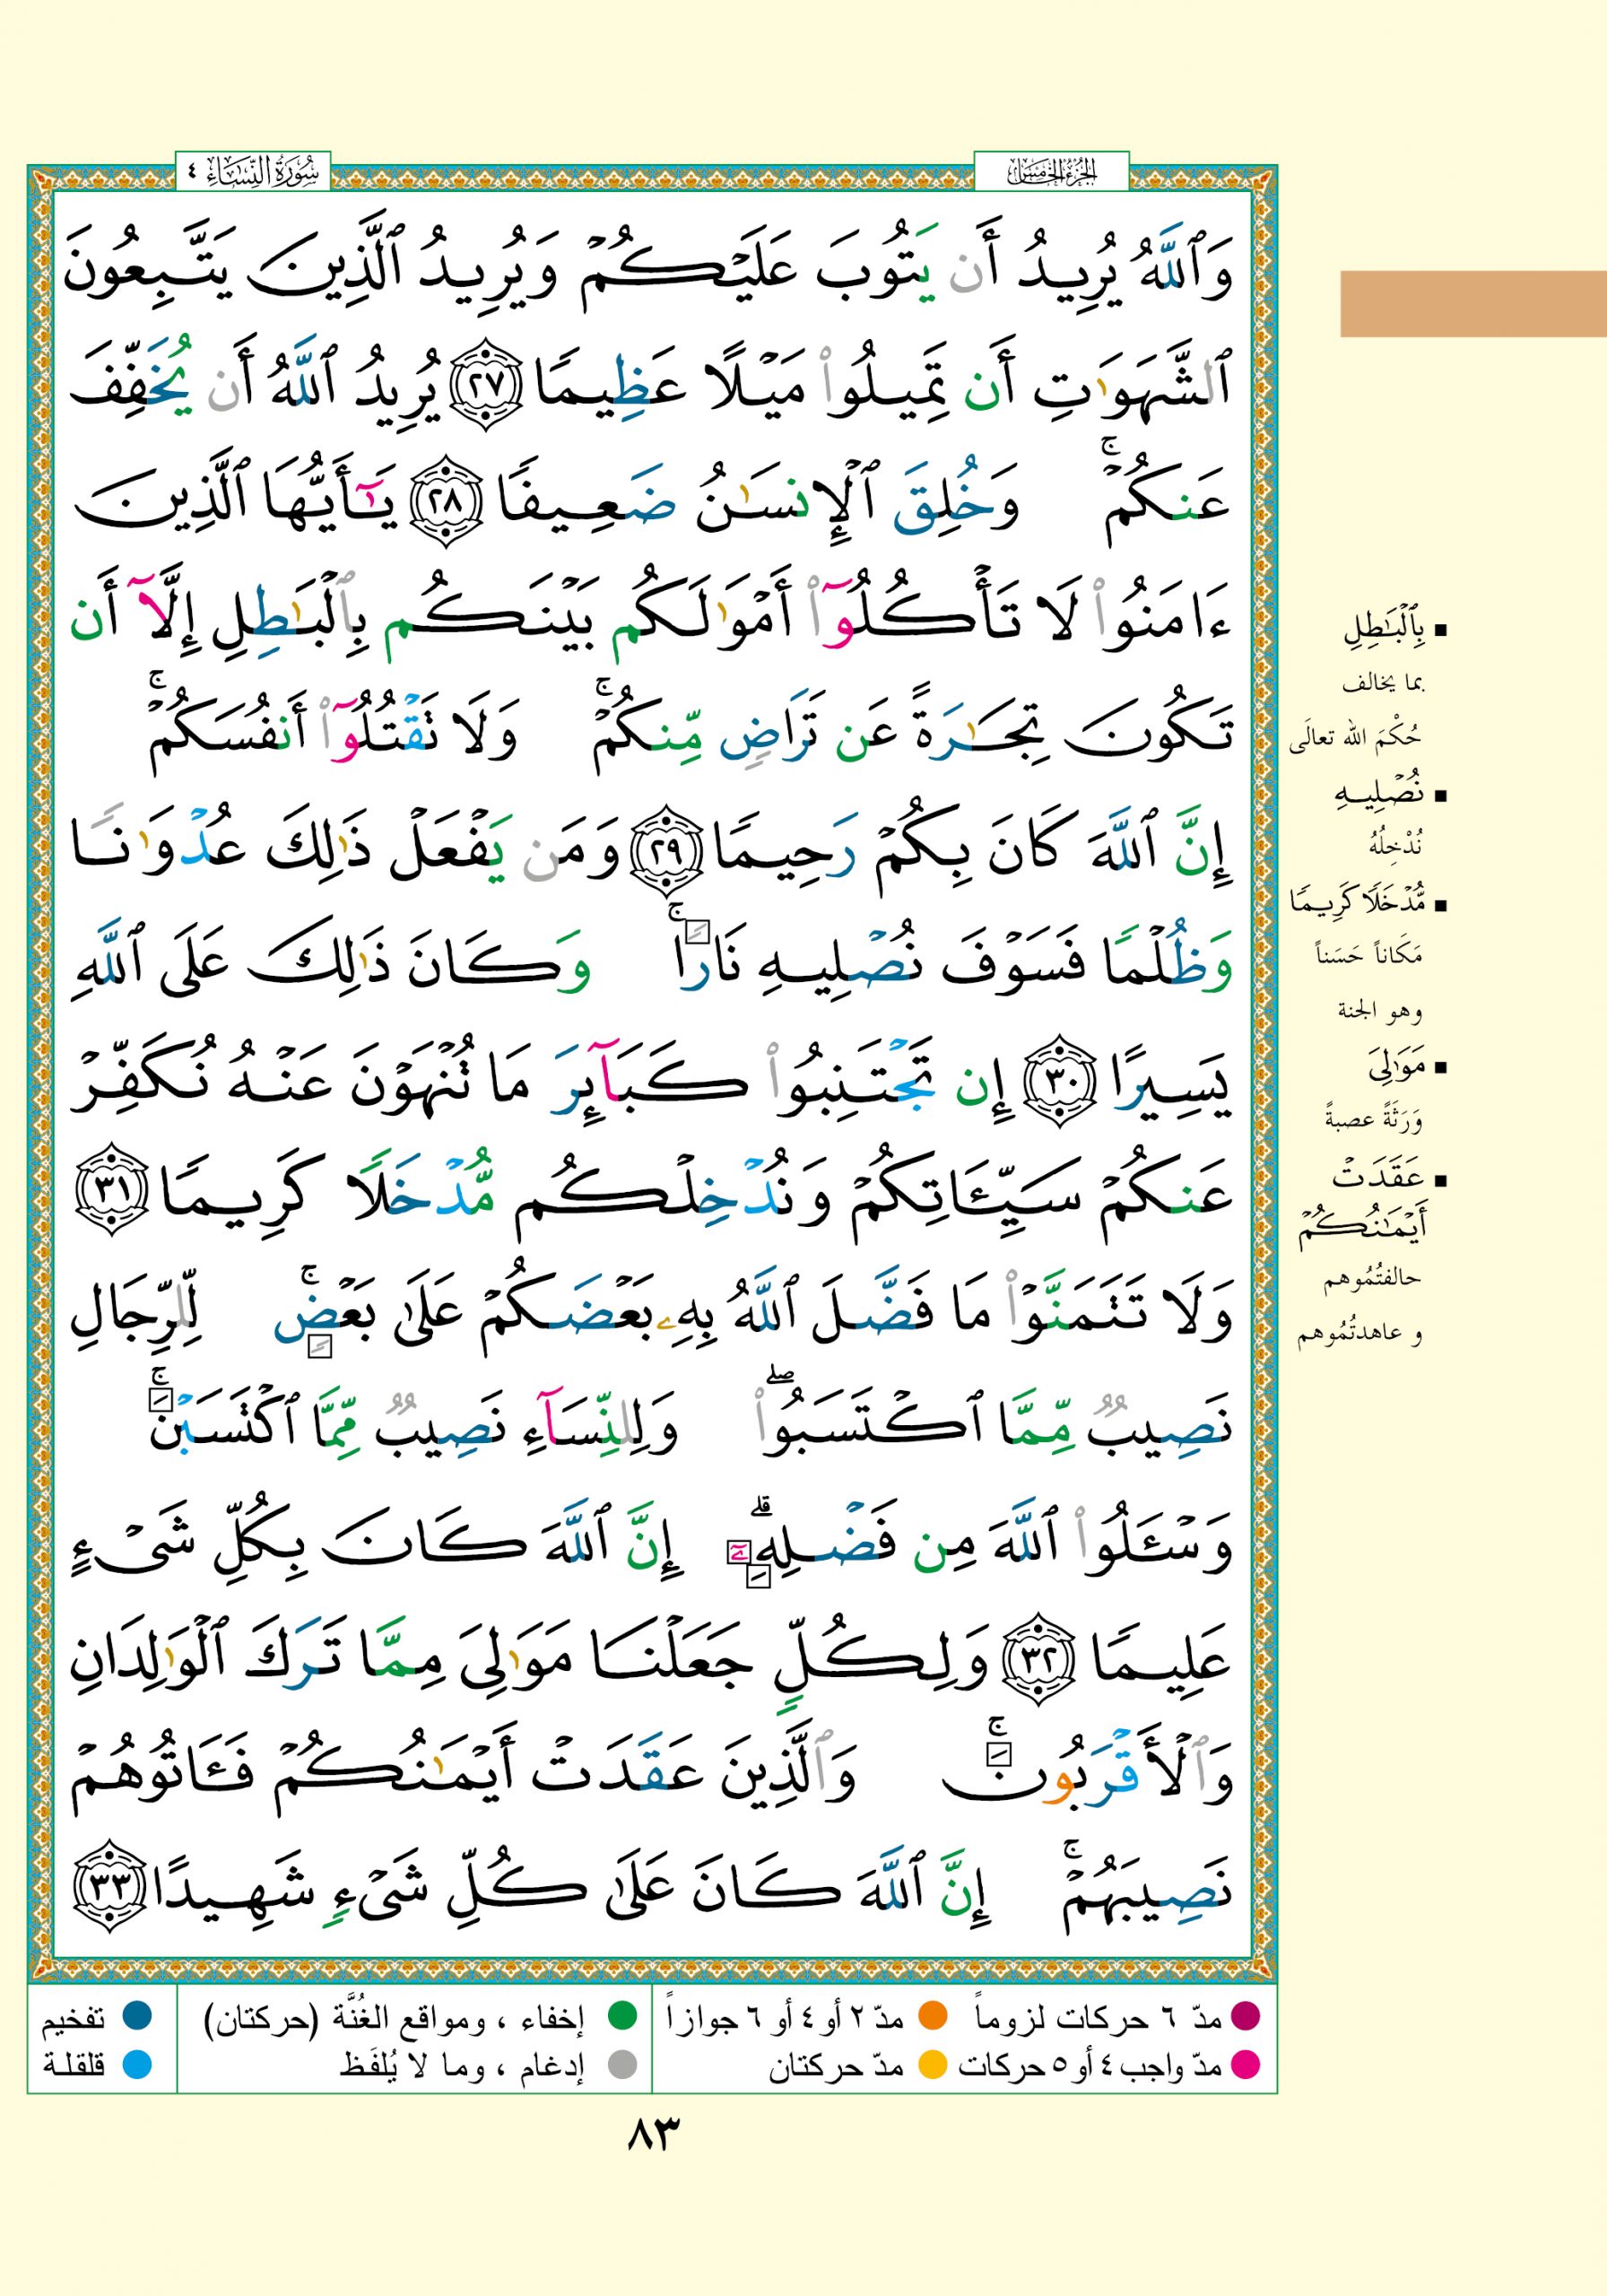 الجزء الخامس
سورة النساء ٤
وَٱللَّهُ يُرِيدُ أَن يَتُوبَ عَلَيْكُمْ وَيُرِيدُ ٱلَّذِينَ يَتَّبِعُونَ
ٱلشَّهَوَٰتِ أَن تَمِيلُوا۟ مَيْلًا عَظِيمًا ٢٧ يُرِيدُ ٱللَّهُ أَن يُخَفِّفَ
عَنكُمْ ۚ وَخُلِقَ ٱلْإِنسَـٰنُ ضَعِيفًا ٢٨ يَـٰٓأَيُّهَا ٱلَّذِينَ
ءَامَنُوا۟ لَا تَأْكُلُوٓا۟ أَمْوَٰلَكُم بَيْنَكُم بِٱلْبَـٰطِلِ إِلَّآ أَن
تَكُونَ تِجَـٰرَةً عَن تَرَاضٍ مِّنكُمْ ۚ وَلَا تَقْتُلُوٓا۟ أَنفُسَكُمْ ۚ
إِنَّ ٱللَّهَ كَانَ بِكُمْ رَحِيمًا ٢٩ وَمَن يَفْعَلْ ذَٰلِكَ عُدْوَٰنًا
وَظُلْمًا فَسَوْفَ نُصْلِيهِ نَارًا ۚ وَكَانَ ذَٰلِكَ عَلَى ٱللَّهِ
يَسِيرًا ٣٠ إِن تَجْتَنِبُوا۟ كَبَآئِرَ مَا تُنْهَوْنَ عَنْهُ نُكَفِّرْ
عَنكُمْ سَيِّـَٔاتِكُمْ وَنُدْخِلْكُم مُّدْخَلًا كَرِيمًا ٣١
وَلَا تَتَمَنَّوْا۟ مَا فَضَّلَ ٱللَّهُ بِهِۦ بَعْضَكُمْ عَلَىٰ بَعْضٍ ۚ لِّلرِّجَالِ
نَصِيبٌ مِّمَّا ٱكْتَسَبُوا۟ ۖ وَلِلنِّسَآءِ نَصِيبٌ مِّمَّا ٱكْتَسَبْنَ ۚ
وَسْـَٔلُوا۟ ٱللَّهَ مِن فَضْلِهِۦٓ ۗ إِنَّ ٱللَّهَ كَانَ بِكُلِّ شَىْءٍ
عَلِيمًا ٣٢ وَلِكُلٍّ جَعَلْنَا مَوَٰلِىَ مِمَّا تَرَكَ ٱلْوَٰلِدَانِ
وَٱلْأَقْرَبُونَ ۚ وَٱلَّذِينَ عَقَدَتْ أَيْمَـٰنُكُمْ فَـَٔاتُوهُمْ
نَصِيبَهُمْ ۚ إِنَّ ٱللَّهَ كَانَ عَلَىٰ كُلِّ شَىْءٍ شَهِيدًا ٣٣
▪ بِٱلْبَـٰطِلِ
بما يخالف
حُكْمَ الله تعالَى
▪ نُصْلِيهِ
نُدْخِلُهُ
▪ مُّدْخَلًا كَرِيمًا
مَكَاناً حَسَناً
وهو الجنة
▪ مَوَٰلِىَ
وَرَثَةً عصبةً
▪ عَقَدَتْ
أَيْمَـٰنُكُمْ
حالفتُمُوهم
و عاهدتُمُوهم
مدّ ٦ حركات لزوماً مدّ ٢ أو ٤ أو ٦ جوازاً إخفاء ، ومواقع الغُنَّة (حركتان) تفخيم
مدّ واجب ٤ أو ٥ حركات مدّ حركتان إدغام ، وما لا يُلفَظ قلقلة
٨٣